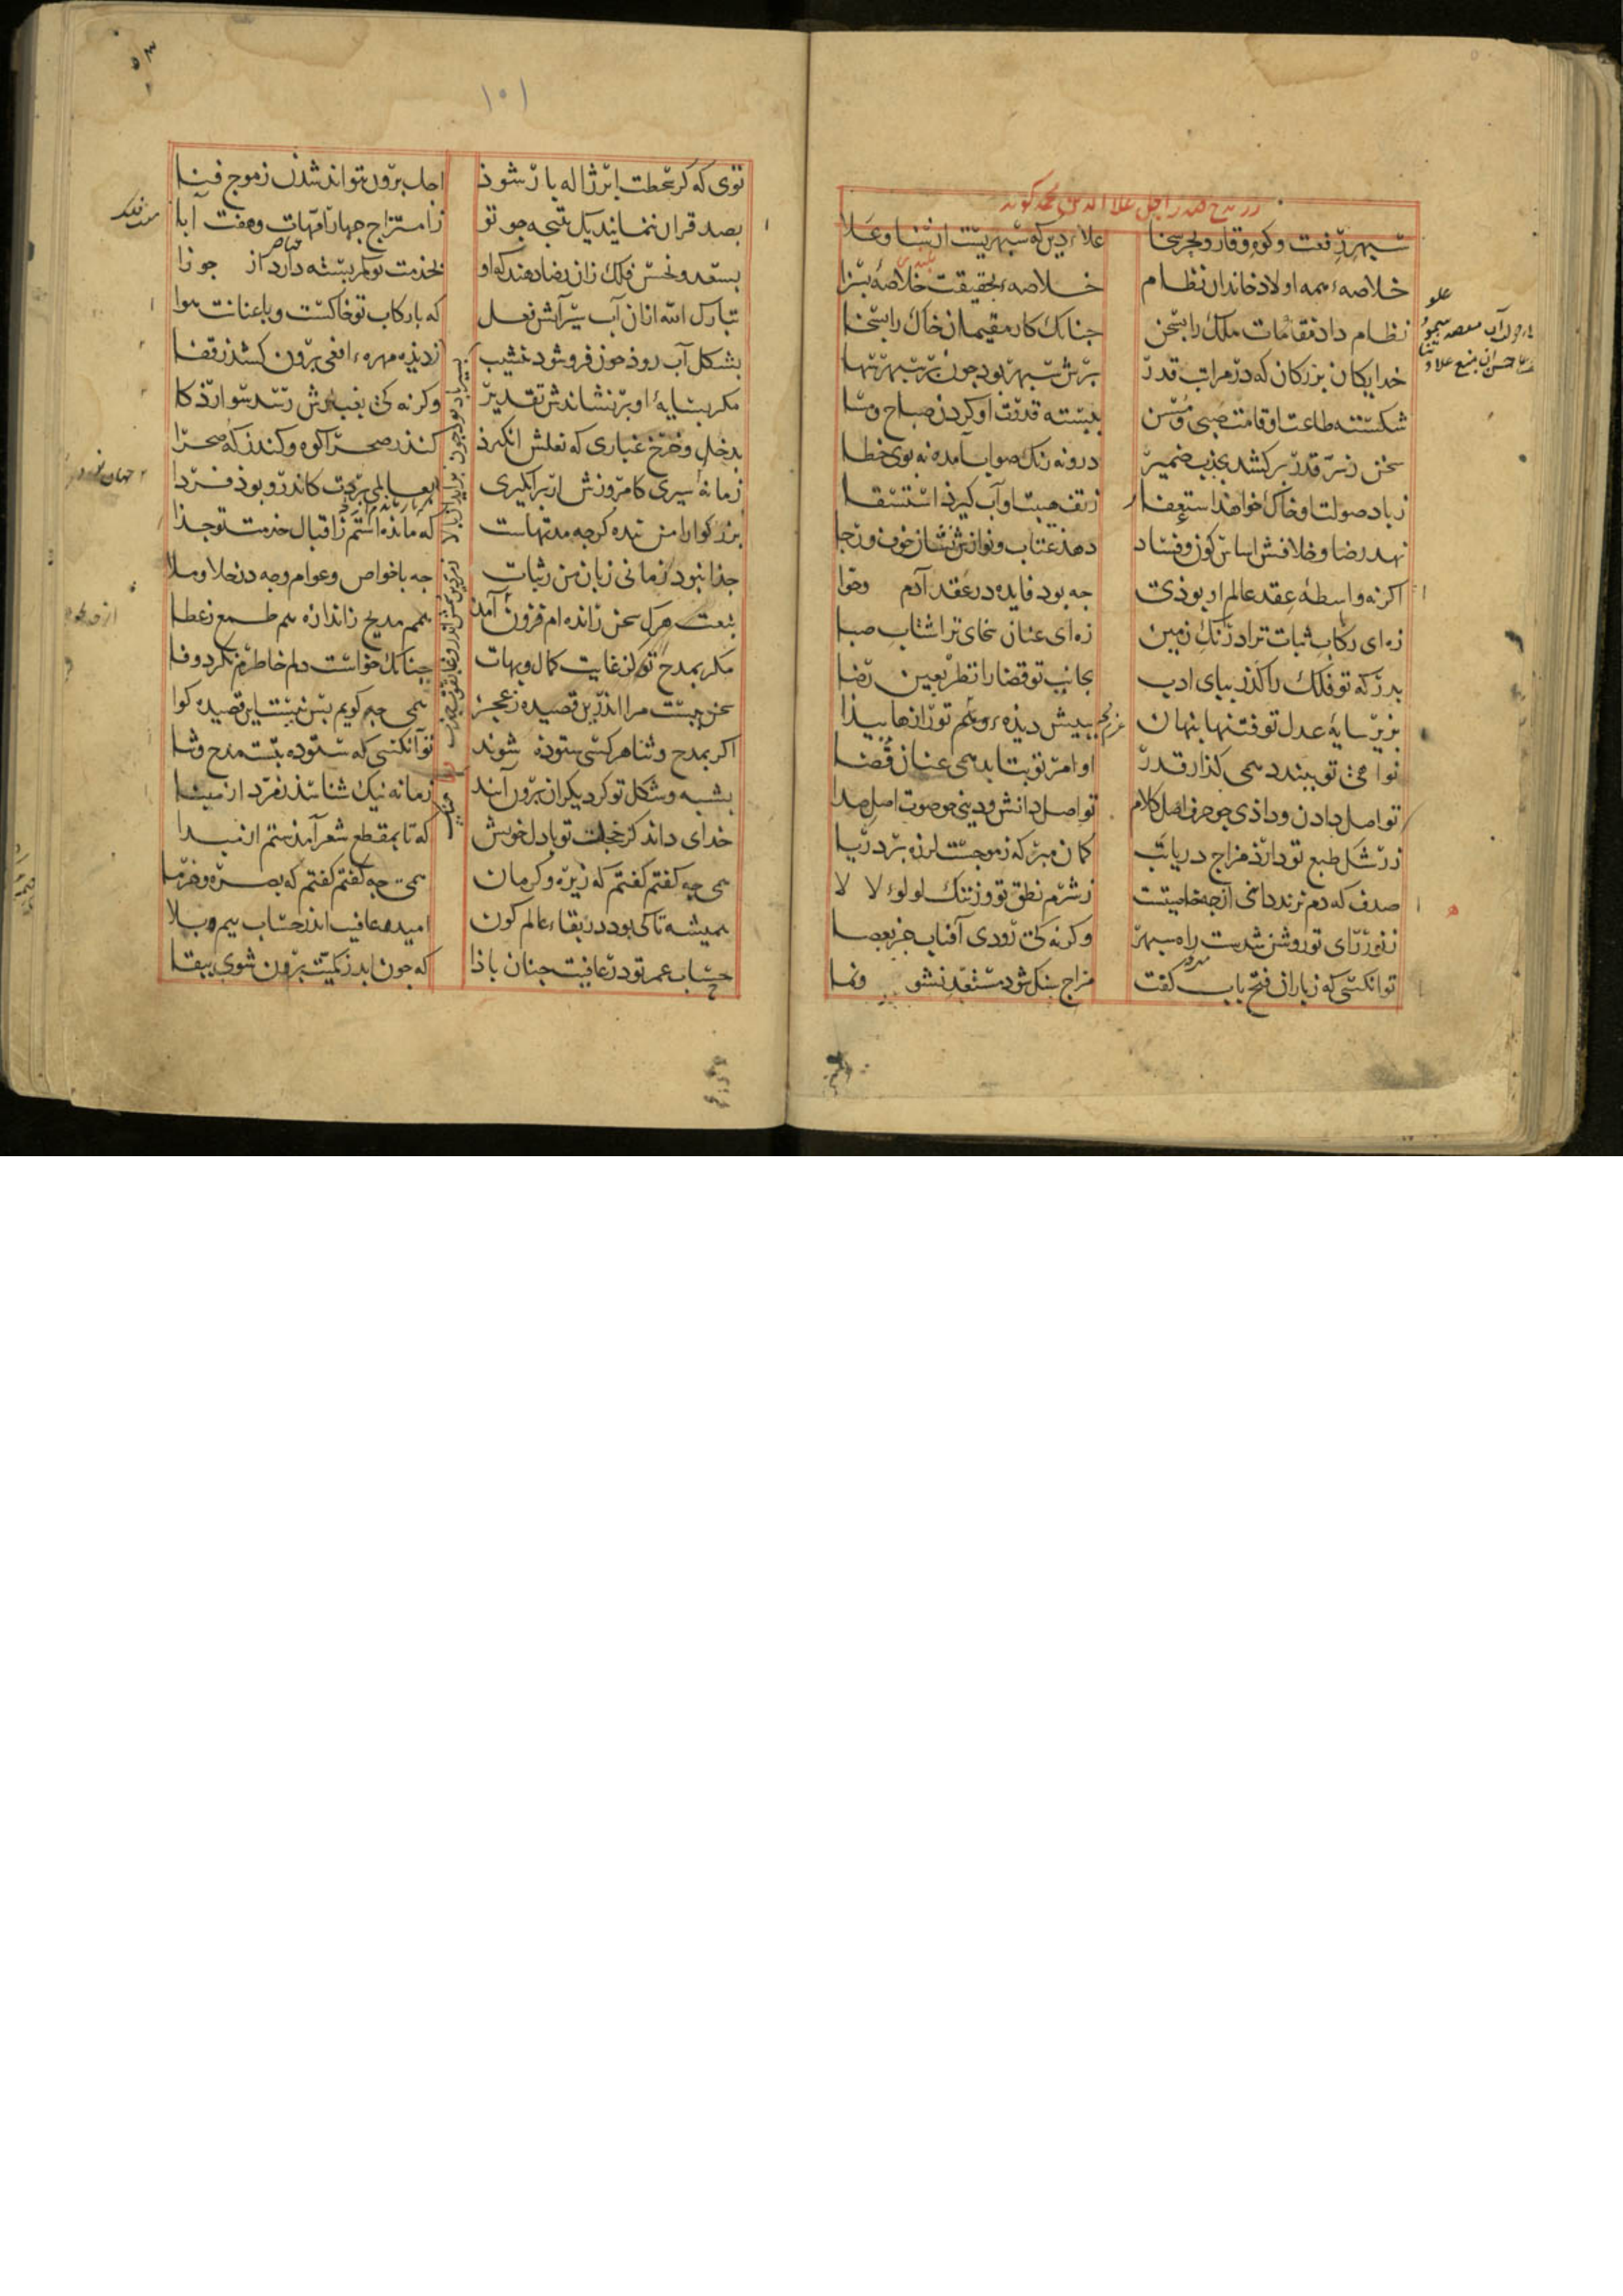 در مدح صدر اجل علاء الدین محمد کوید
سپهر رفعت و کوه وقار و بحر سخا علاء دین که سپهریست از سنا و علا
خلاصهٔ همه اولاد خاندان نظام خلاصهٔ بحقیقت خلاصهٔ بسزا
نظام داد مقامات ملک را بسخن جنانک کار مقیمان خاک را بسخا
خدایکان بزرکان که در مراتب قدر برش سپهر بود جون بر سپهر سها
شکسته طاعت او قامت صبی و مسن ببسته قدرت او کردن صباح و مسا
سخن ز سر قدر برکشد بجذب ضمیر درو نه رنک صواب آمده نه بوی خطا
زباد صولت او خاک خواهد استعفا ز تف هیبت او آب کیرد استسقا
نهد رضا و خلافش اساس کون و فساد دهد عتاب و نوازش نشان خوف و رجا
اکر نه واسطهٔ عقد عالم او بوذی جه بود فایده در عقد آدم و حوا
زه ای رکاب ثبات ترا درنک زمین زه ای عنان سخای ترا شتاب صبا
بدرکه تو فلک را کذر ببای ادب بجانب تو قضا را نظر بعین رضا
بزیر سایهٔ عدل تو فتنها بنهان ببیش دیدهٔ وهم تو رازها بیدا
نواهی تو ببندد همی کذار قدر اوامر تو بتابد همی عنان قضا
تو اصل دادن و داذی جو حرف اصل کلام تو اصل دانش و دینی جو صوت اصل صدا
ز رشک طبع تو دارد مزاج دریا تب کمان مبر که ز موجست لرزه بر دریا
صدف که دم نزند دانی از جه خاصیتست ز شرم نطق تو وز ننک لولوء لا لا
ز نور رای تو روشن شدست راه سپهر وکر نه کی رودی آفتاب جز بعصا
تو آنکسی که ز باران فتح باب کفت مزاج سنک شود مستعد نشو و نما
۱۰۱
توی که کر سخطت ابر ژاله بار شود اجل برون نتواند شدن ز موج فنا
بصد قران ننماید یک نتیجه جو تو ز امتزاج جهار امهات و هفت آبا
بسعد و نحس فلک زان رضا دهند که او بخدمت تو کمر بسته دارد از جوزا
تبارک الله ازان آب سیر آتش فعل که با رکاب تو خاکست و با عنانت هوا
بشکل آب روذ جون فروشود بنشیب
مکر بسایهٔ او برنشاندش تقدیر وکر نه کی بغبارش رسد سوار ذکا
بدخل و خرج غباری که نعلش انکیزد کند ز صحرا کوه و کند ز که صحرا
زمانه سیری کامروزش ار برانکیزی بعالمی بردت کاندرو بود فردا
بزرکوارا من بنده کرجه مدتهاست که مانده‌استم ز اقبال خدمت تو جذا
جذا نبود زمانی زبان من ز ثبات جه با خواص و عوام و جه در خلا و ملا
بنعت هرک سخن رانده‌ام فزون آمد همم مدیح ز اندازه هم طمع ز عطا
مکر بمدح تو کز غایت کمال و بهات جنانک خواست دلم خاطرم نکرد وفا
سخن جیست مرا اندرین قصیده ز عجز همی جه کویم بس نیست این قصیده کوا
اکر بمدح و ثنا هر کسی ستوده شوند تو آنکسی که ستوده بتست مدح و ثنا
بشبه و شکل تو کر دیکران برون آیند زمانه نیک شناسد زمرد از مینا
خدای داند کز خجلت تو با دل خویش که تا بمقطع شعر آمدستم از مبدا
همی جه کفتم کفتم که زیره و کرمان همی جه کفتم کفتم که بصره و خرما
همیشه تا که بود در بقاء عالم کون امید عافیت اندر حساب بیم و بلا
حساب عمر تو در عافیت جنان باذا که جون ابد ز کمیت برون شوی ببقا